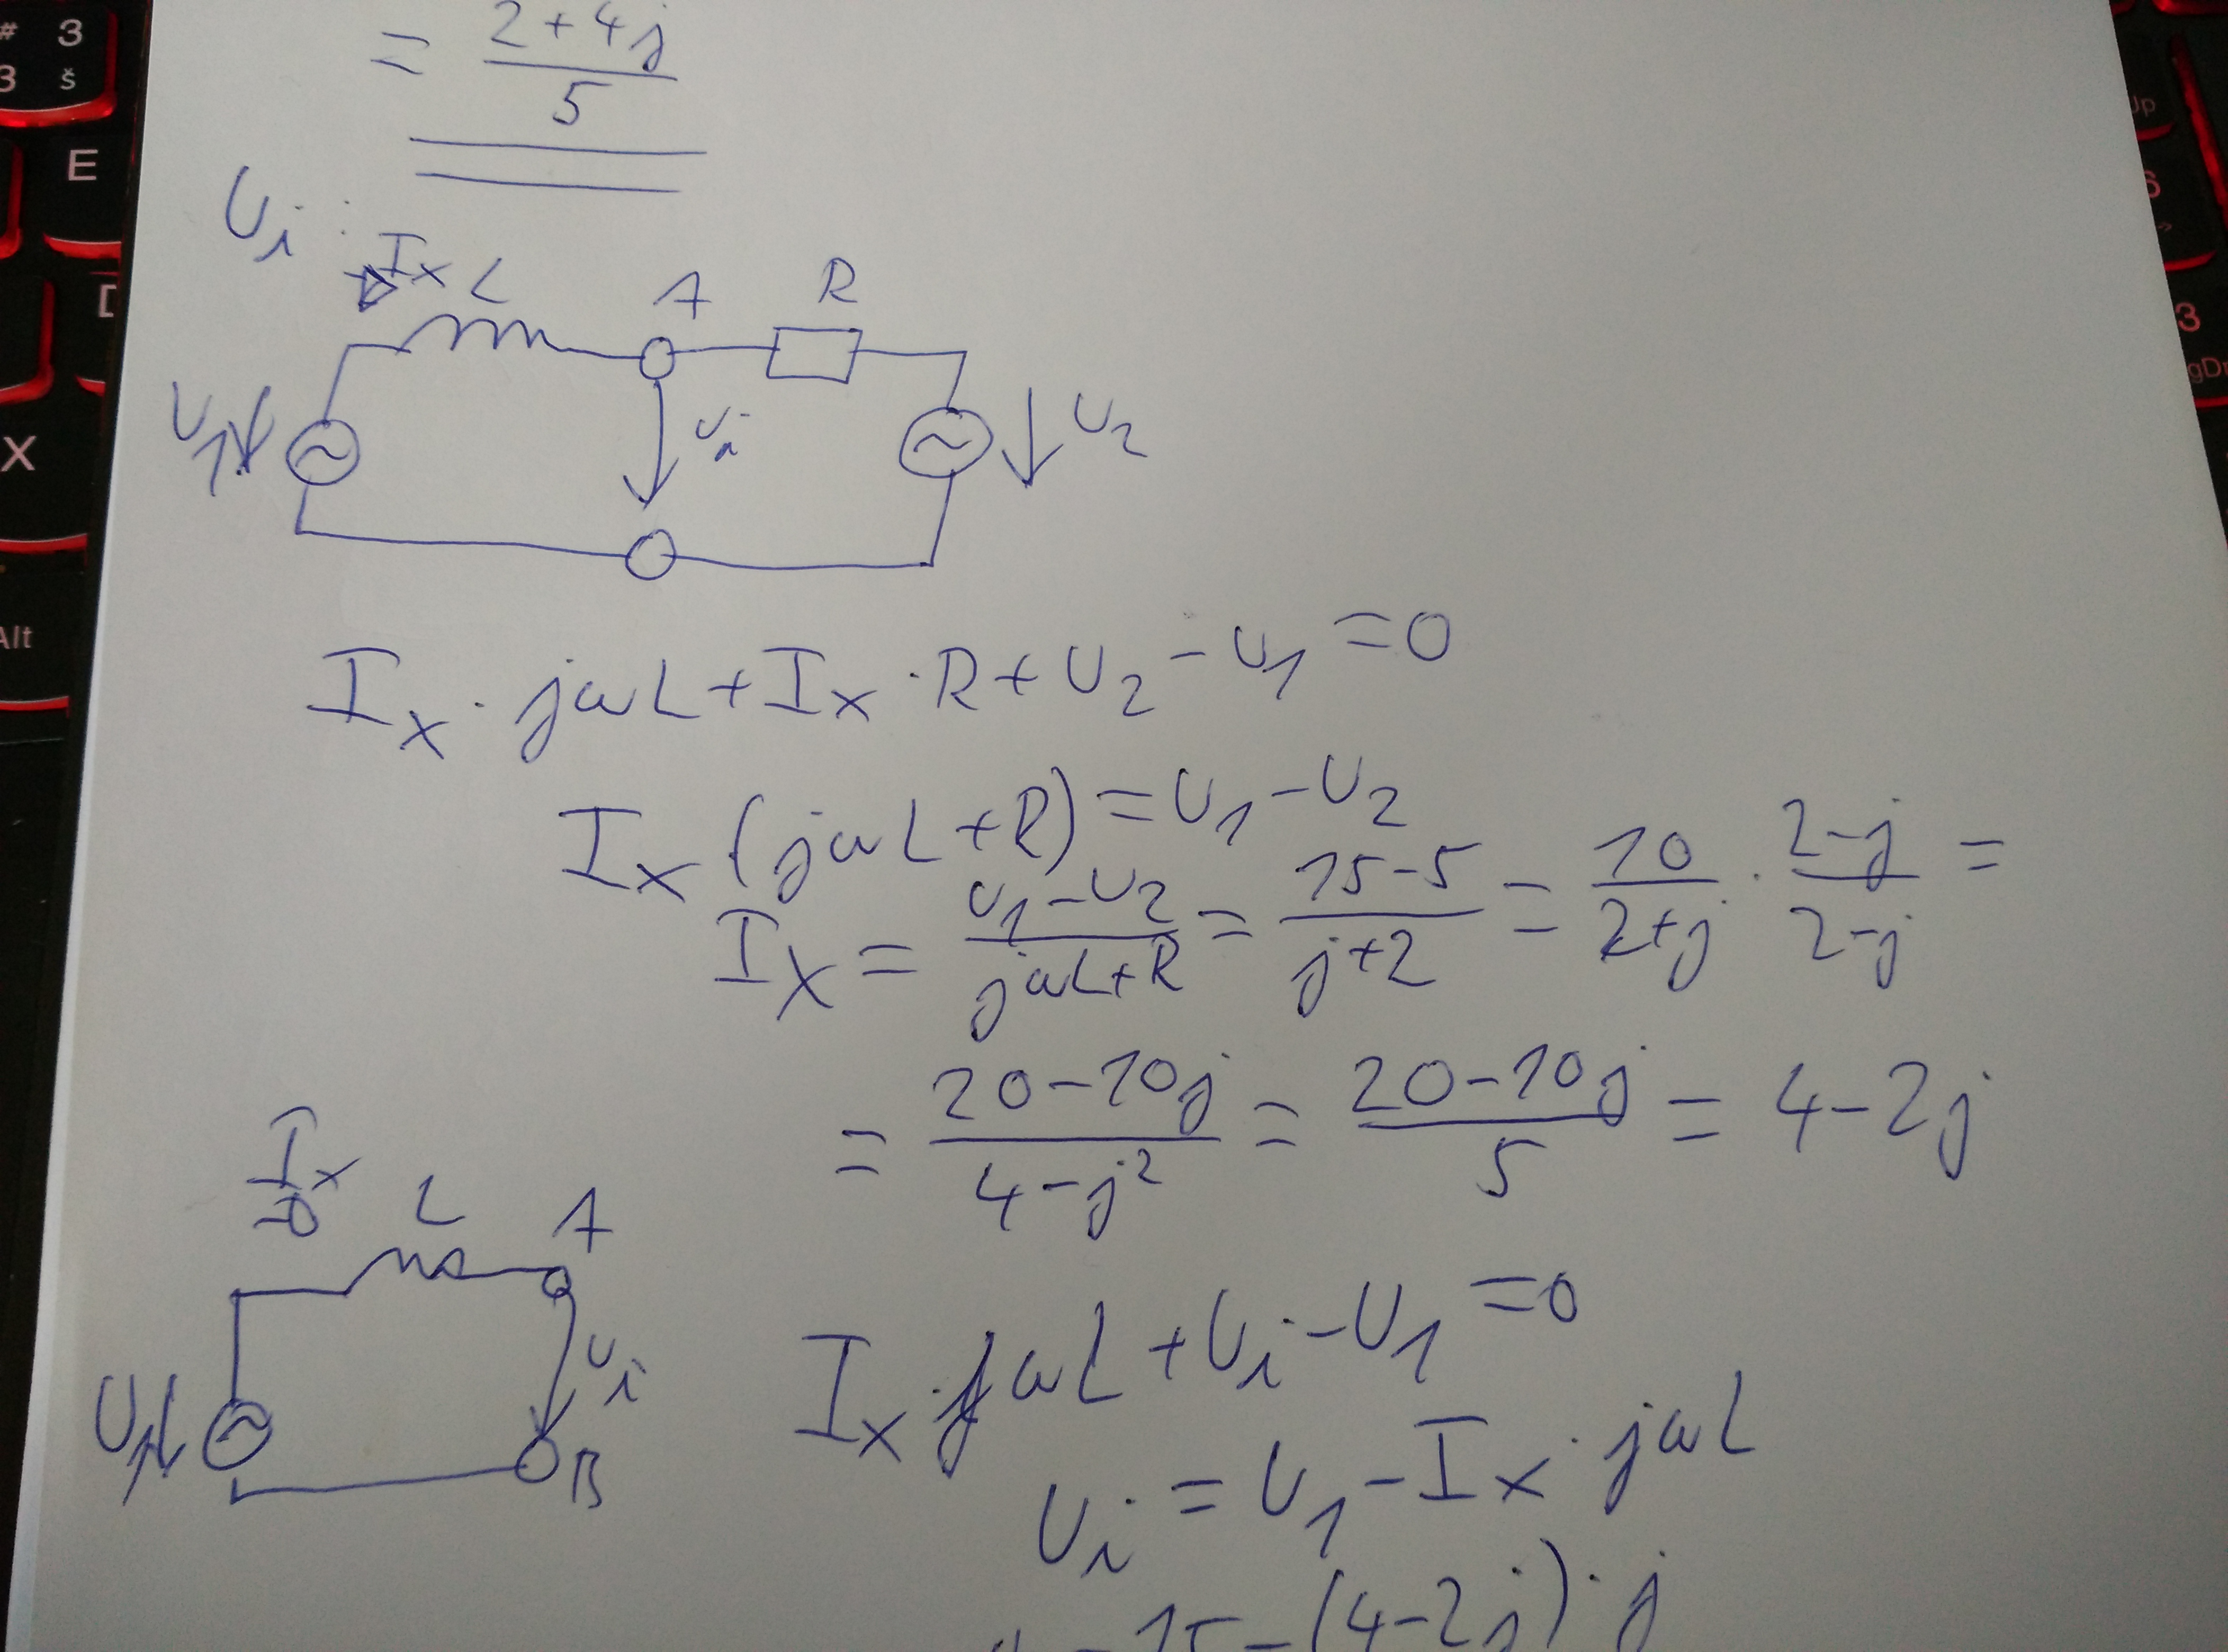 = (2+4j)/5
Ui:
Ix L A R
U1 Ui U2
Ix · jωL + Ix · R + U2 - U1 = 0
Ix (jωL + R) = U1 - U2
Ix = (U1 - U2)/(jωL + R) = (15-5)/(j+2) = 10/(2+j) · (2-j)/(2-j) =
= (20-10j)/(4-j²) = (20-10j)/5 = 4-2j
Ix
L A
U1 Ui
B
Ix · jωL + Ui - U1 = 0
Ui = U1 - Ix · jωL
15 - (4-2j) · j
# 3
3 š
E
X
Alt
3